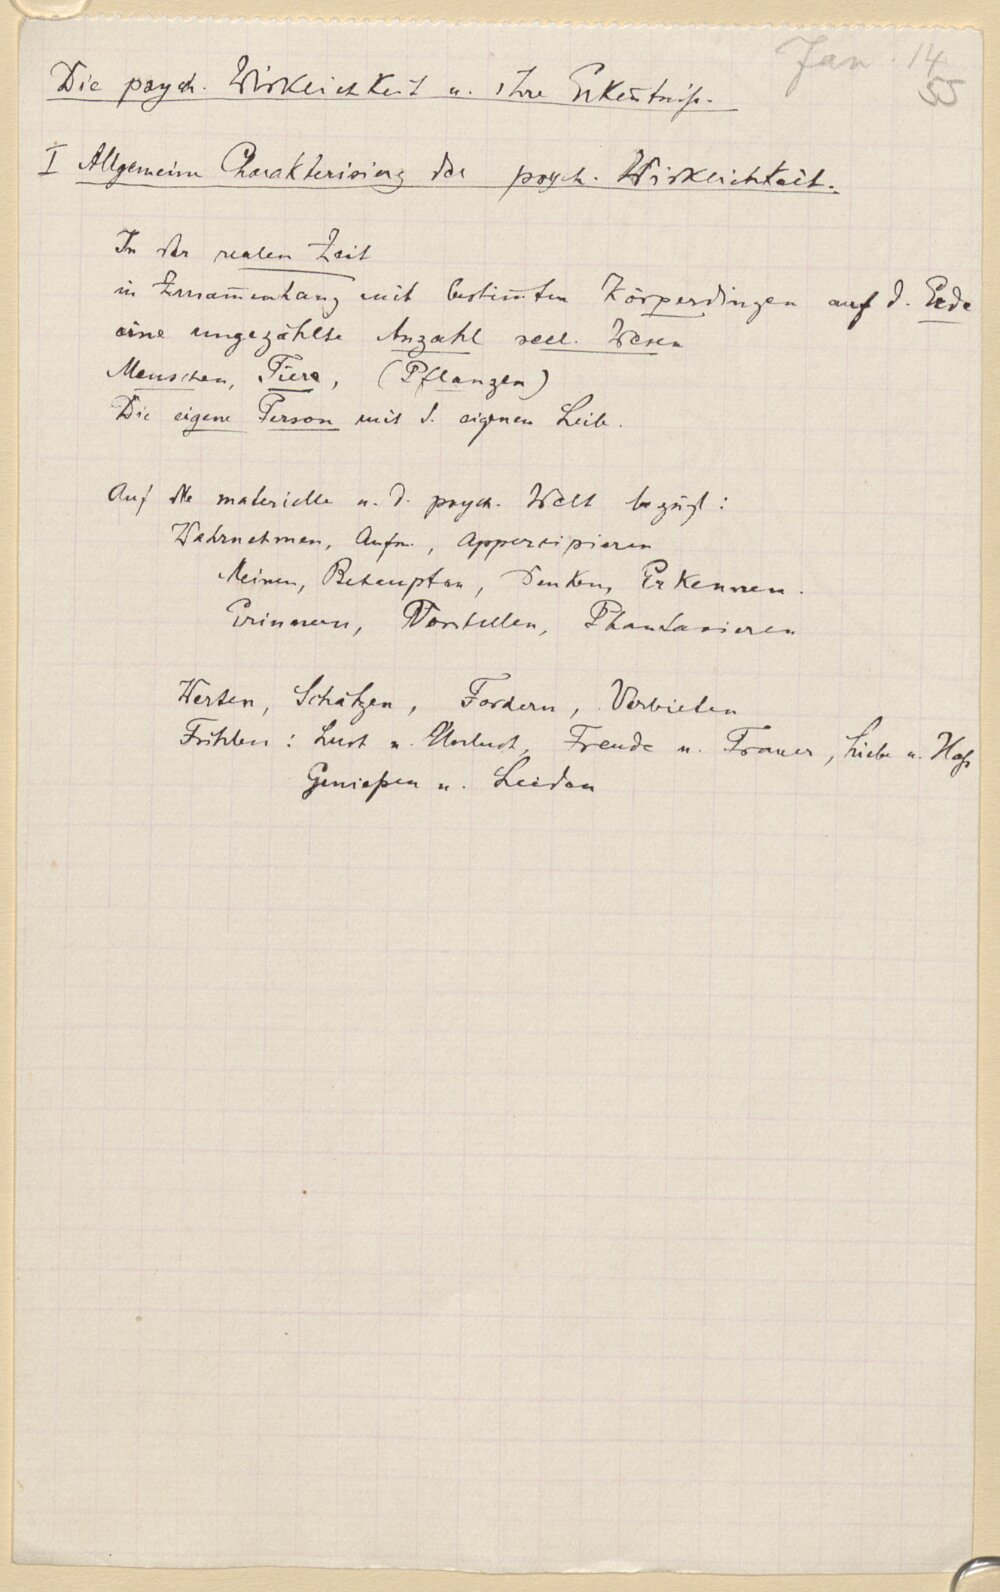 Jan. 14
55
Die psych. Wirklichkeit u. ihre Erkenntniß.
I Allgemeine Charakterisierg der psych. Wirklichkeit.
In der realen Zeit
in Zusam̅enhang mit bestim̅ten Körperdingen auf d. Erde
eine ungezählte Anzahl seel. Wesen
Menschen, Tiere, (Pflanzen)
Die eigene Person mit d. eigenen Leibe.
Auf die materielle u. d. psych. Welt bezügl:
Wahrnehmen, Aufm., Apperzipieren
Meinen, Behaupten, Denken, Erkennen.
Erinnern, Vorstellen, Phantasieren
Werten, Schätzen, Fordern, Verbieten
Fühlen: Lust u. Unlust, Freude u. Trauer, Liebe u. Haß
Genießen u. Leiden